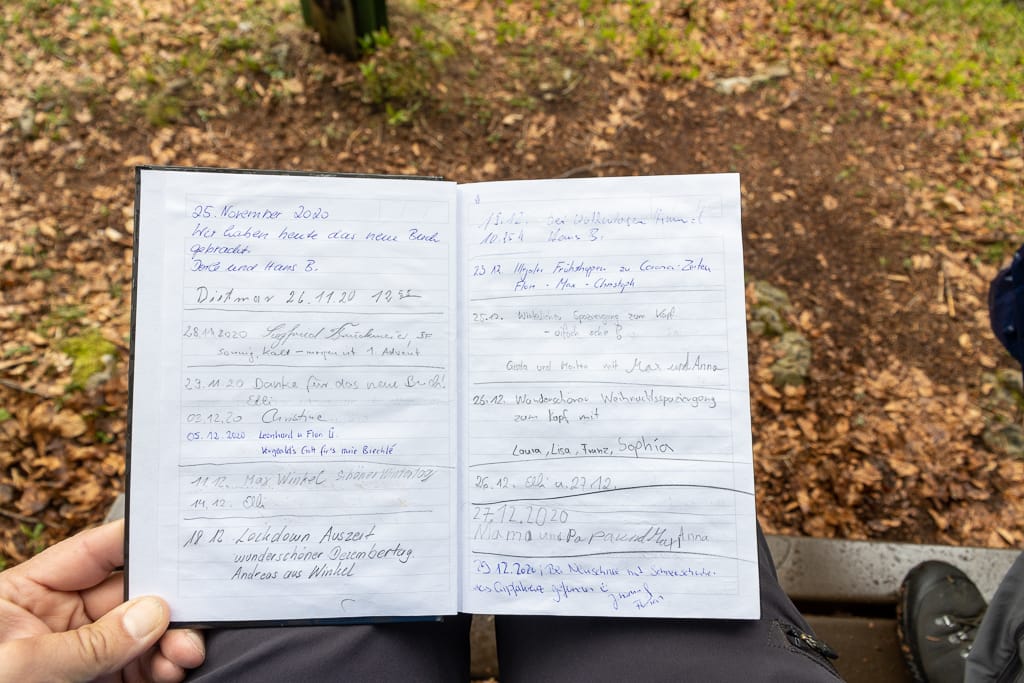 25. November 2020
Wir haben heute das neue Buch
gebracht.
und Hans B.
Dietmar 26.11.20 12
28.11.2020 Siegfried
sonnig, kalt – morgen ist 1. Advent
29.11.20 Danke für das neue Buch!
Elli
03.12.20 Christine
05.12.2020 Leonhard u Flori Ü.
Vergeald's Gott für's neie Biechlé
11.12. Max Winkel schöner Wintertag
14.12. Elli
18.12 Lockdown Auszeit
wunderschöner Dezembertag.
Andreas aus Winkel
Hans B.
23.12. Illegaler Frühshoppen zu Corona-Zeiten
Flori - Max - Christoph
25.12. Spaziergang zum Kopf
- oifach
und mit Max und Anna
26.12. Wunderschöner Weihnachtsspaziergang
zum Kopf mit
Laura, Lisa, Franz, Sophia
26.12. Elli u. 27.12.
27.12.2020
Mama und Papa und Anna
29.12.2020, Bei Neuschnee mit
das Gipfelkreuz gefunden